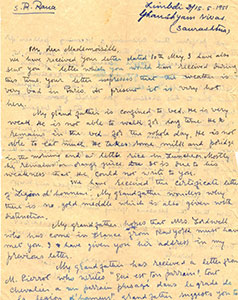 S. R. Rana
Limbdi 9/15-5-1951
Ghanshyam Nivas
(Saurashtra)
My dear Mademoiselle,
We have received your letter dated 10th May, I have also
sent you a letter which you would have received during
this time your letter impresses that the weather is
very bad in Paris, to present it is very hot
here.
My grand father is confined to bed. He is very
weak and is not able to walk for long time. He
remains in the bed for the whole day. He is not
able to eat much. He takes some milk and
in the morning and a little rice in
he remains on orange juice. Due to his
weakness that he could not write to you.
We have received the certificate letter
of "Légion d'honneur". My grandfather
there is no gold medal which is also given with
distinction.
My grandfather hopes that Mrs Fordwell
who has come in France from New York must have
met you I have given you her address in my
previous letter.
My grandfather has received a letter from
M. Pierrot who writes "Qui est ton parrain! tout
chevalier a un parrain français dans le grade de
la Légion d'honneur" grandfather